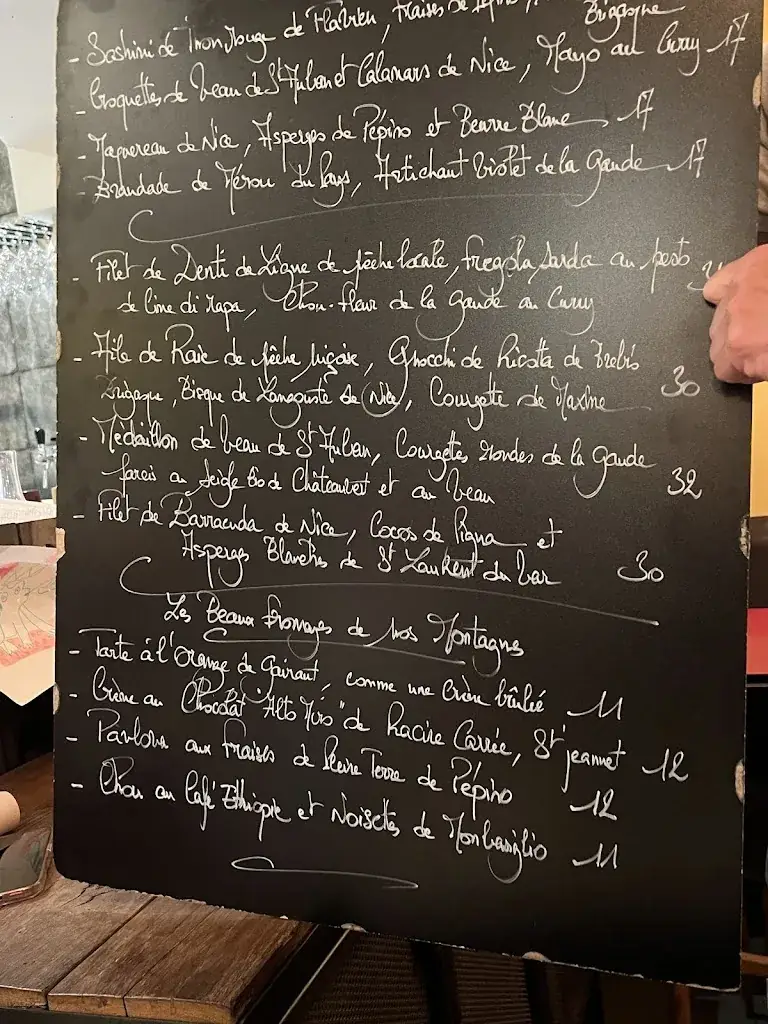 - Sashimi de Thon Rouge de Flavien, Fraises de Pépino,
Brigasque
- Croquettes de Veau de St Auban et Calamars de Nice, Mayo au Curry 17
- Maquereau de Nice, Asperges de Pépino et Beurre Blanc 17
- Brandade de Mérou du Pays, Artichaut Violet de la Gaude 17
- Filet de Denti de Ligne de pêche locale, fregola sarda au pesto
de cime di rapa, Chou-fleur de la Gaude au Curry
- Aile de Raie de pêche niçoise, Gnocchi de Ricotta de Brebis
Brigasque, Bisque de Langouste de Nice, Courgette de Maxime 30
- Médaillon de Veau de St Auban, Courgettes rondes de la Gaude
farcis au Seigle bio de Châteauvert et au Veau 32
- Filet de Barracuda de Nice, Cocos de Pigna et
Asperges Blanches de St Laurent du Var 30
Les Beaux fromages de nos Montagnes
- Tarte à l'Orange de Gairaut, comme une Crème brûlée 11
- Crème au Chocolat "Alto Mayo" de Racine Carrée, St Jeannet 12
- Pavlova aux fraises de Pleine Terre de Pépino 12
- Chou au Café Ethiopie et Noisettes de Monbasiglio 11